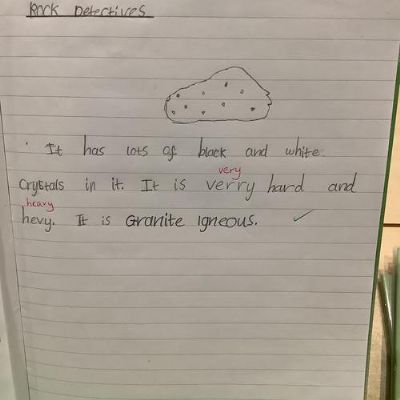 Rock Detectives
It has lots of black and white
very
Crystals in it. It is verry hard and
heavy
hevy. It is Granite Igneous.